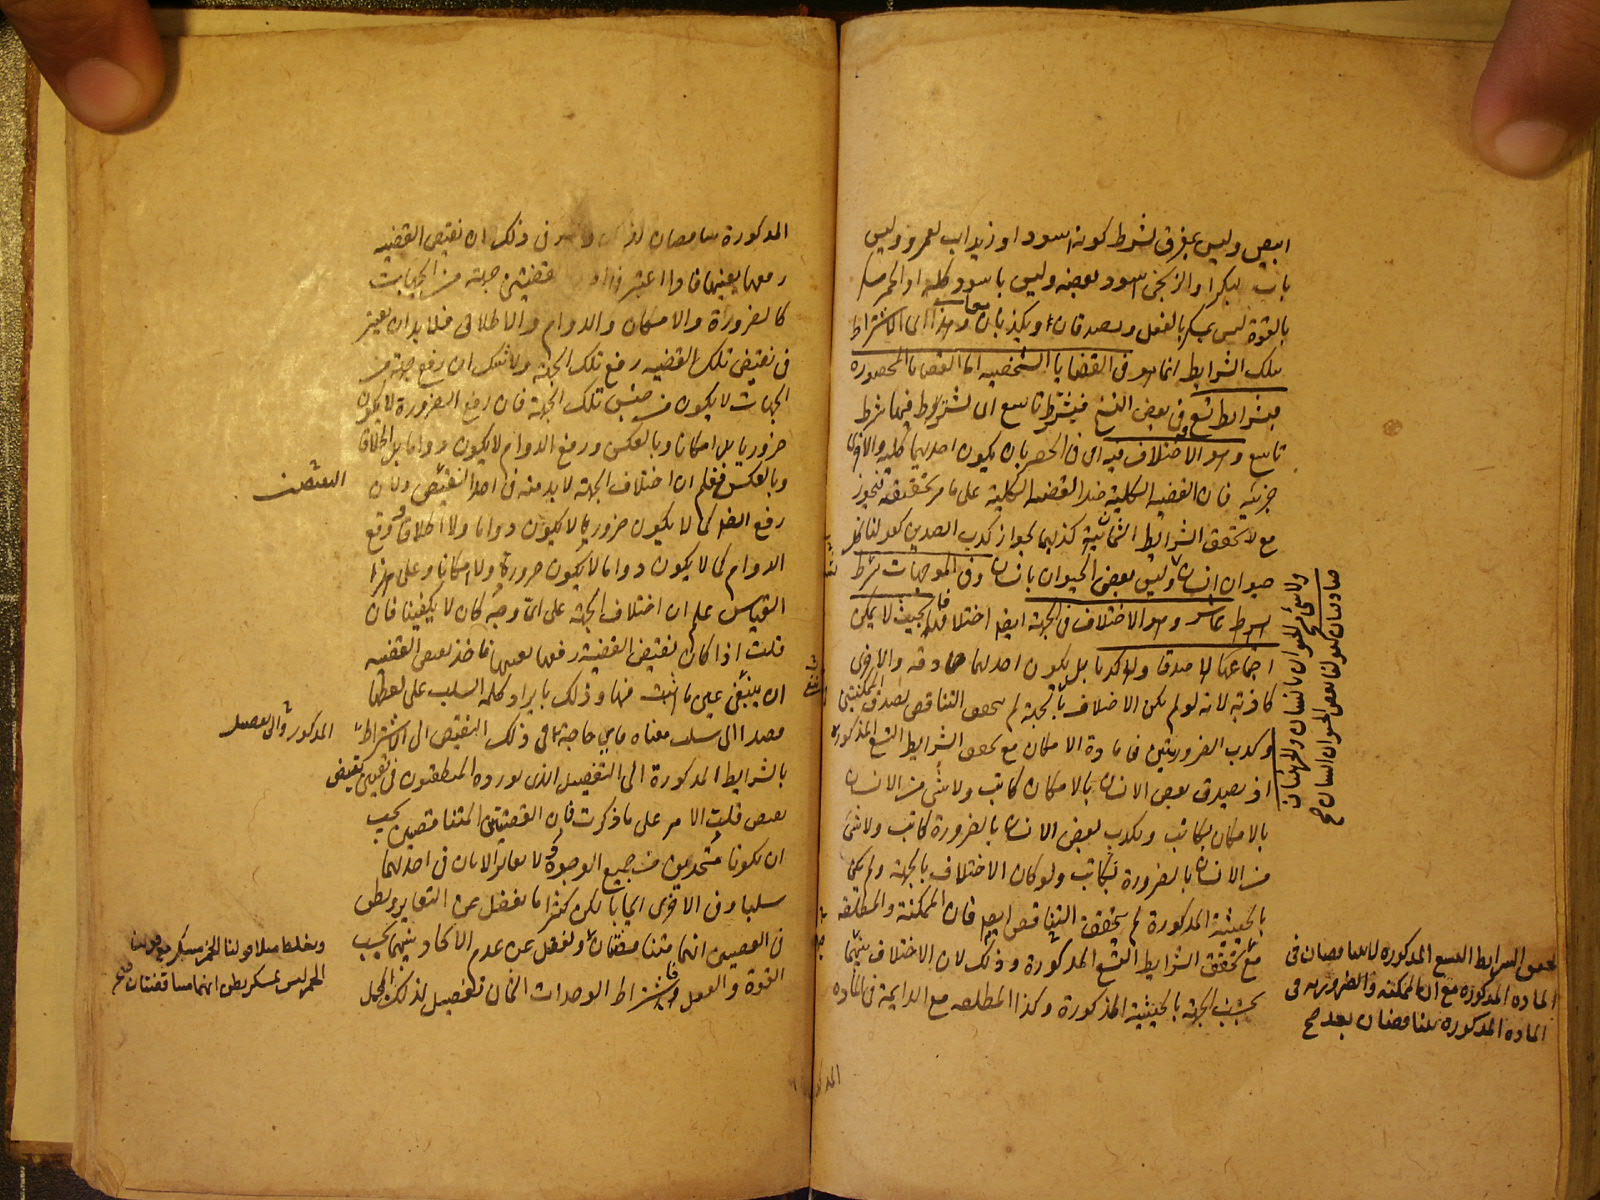 ابيض وليس بمفرق بشرط كونه اسود او زيد اب لعمرو وليس
باب لبكر او الزنجى اسود بعضه وليس باسود كله او الخمر مسكر
بالقوة ليس بمسكر بالفعل ويصدقان او يكذبان معا وهذا اى الاشتراط
بتلك الشرايط انما هو فى القضايا الشخصيه اما القضايا المحصوره
فبشرايط تسع وفى بعض النسخ فيشترط تاسع اى يشترط فيها شرط
تاسع وهو الاختلاف فيه اى فى الحصر بان يكون احدايهما كليه والاخرى
جزئيه فان القضيه الكلية ضد القضيه الكلية على ما مر تحقيقه فيجوز
مع تحقق الشرايط الثمانية كذبهما لجواز كذب الضدين كقولنا كل
حيوان انسان وليس بعض الحيوان بانسان وفى الموجهات بشرط
بشرط عاشر وهو الاختلاف فى الجهة ايضا اختلافا بحيث لا يمكن
اجتماعهما لا صدقا ولا كذبا بل يكون احدايهما صادقه والاخرى
كاذبة لانه لو لم يكن الاختلاف بالجهة لم يتحقق التناقض لصدق الممكنتين
وكذب الضروريتين فى مادة الامكان مع تحقق الشرايط التسع المذكورة
اذ يصدق بعض الانسان بالامكان كاتب ولا شئ من الانسان
بالامكان بكاتب ويكذب بعض الانسان بالضرورة كاتب ولا شئ
من الانسان بالضرورة بكاتب ولو كان الاختلاف بالجهة ولم يكن
بالحيثية المذكورة لم يتحقق التناقض ايضا فان الممكنة والمطلقه
مع تحقق الشرايط التسع المذكورة وذلك لان الاختلاف بينهما
بحسب الجهة بالحيثية المذكورة وكذا المطلقه مع الدايمة فى الماده
ولا شئ من الحيوان بانسان والجزئيتان
صادقتان كقولنا بعض الحيوان انسان صح
تحقق الشرايط التسع المذكوره لا تتناقضان فى
الماده المذكوره مع ان الممكنه والضروريه فى
الماده المذكوره متناقضتان بعد صح
المذكورة
المذكورة متناقضان فى ذلك ان نقيض القضيه
رفعها بعينها فاذا اعتبر فى القضيتين جهة من الجهات
كالضرورة والامكان والدوام والاطلاق فلا بد ان يعتبر
فى نقيض تلك القضيه رفع تلك الجهة ولا شك ان رفع جهة من
الجهات لا يكون من جنس تلك الجهة فان رفع الضرورة لا يكون
ضروريا بل امكانا وبالعكس ورفع الدوام لا يكون دواما بل اطلاقا
وبالعكس فعلم ان اختلاف الجهة لا بد منه فى اخذ النقيض ولان
رفع الضرورة كما لا يكون ضروريا لا يكون دواما ولا اطلاقا ورفع
الدوام كما لا يكون دواما لا يكون ضرورة ولا امكانا وعلى هذا
القياس علم ان اختلاف الجهة على اى وجه كان لا يكفينا فان
قلت اذا كان نقيض القضية رفعها بعينها فاخذ نقيض القضيه
ان ينفى عين ما اثبت فيها وذلك بايراد كلمة السلب على لفظها
قصدا الى سلب معناه فاى حاجة فى ذلك النقيض الى الاشتراط
بالشرايط المذكورة الى التفصيل الذى يورده المنطقيون فى تعيين نقيض
نقيض قلت الامر على ما ذكرت فان القضيتين المتناقضتين يجب
ان يكونا متحدتين من جميع الوجوه ولا تغاير الا بان فى احديهما
سلبا وفى الاخرى ايجابا لكن كثيرا ما يغفل عن التغاير ويظن
فى القضيتين انهما متناقضتان ولغفل عن عدم الاتحاد بينهما بحسب
القوة والفعل فاشتراط الوحدات الثمان تفصيل لذلك المجمل
النقيضين
المذكور والى تفصيل
ويغلط مثلا قولنا الخمر مسكر مع قولنا
الخمر ليس بمسكر يظن انهما متناقضتان صح